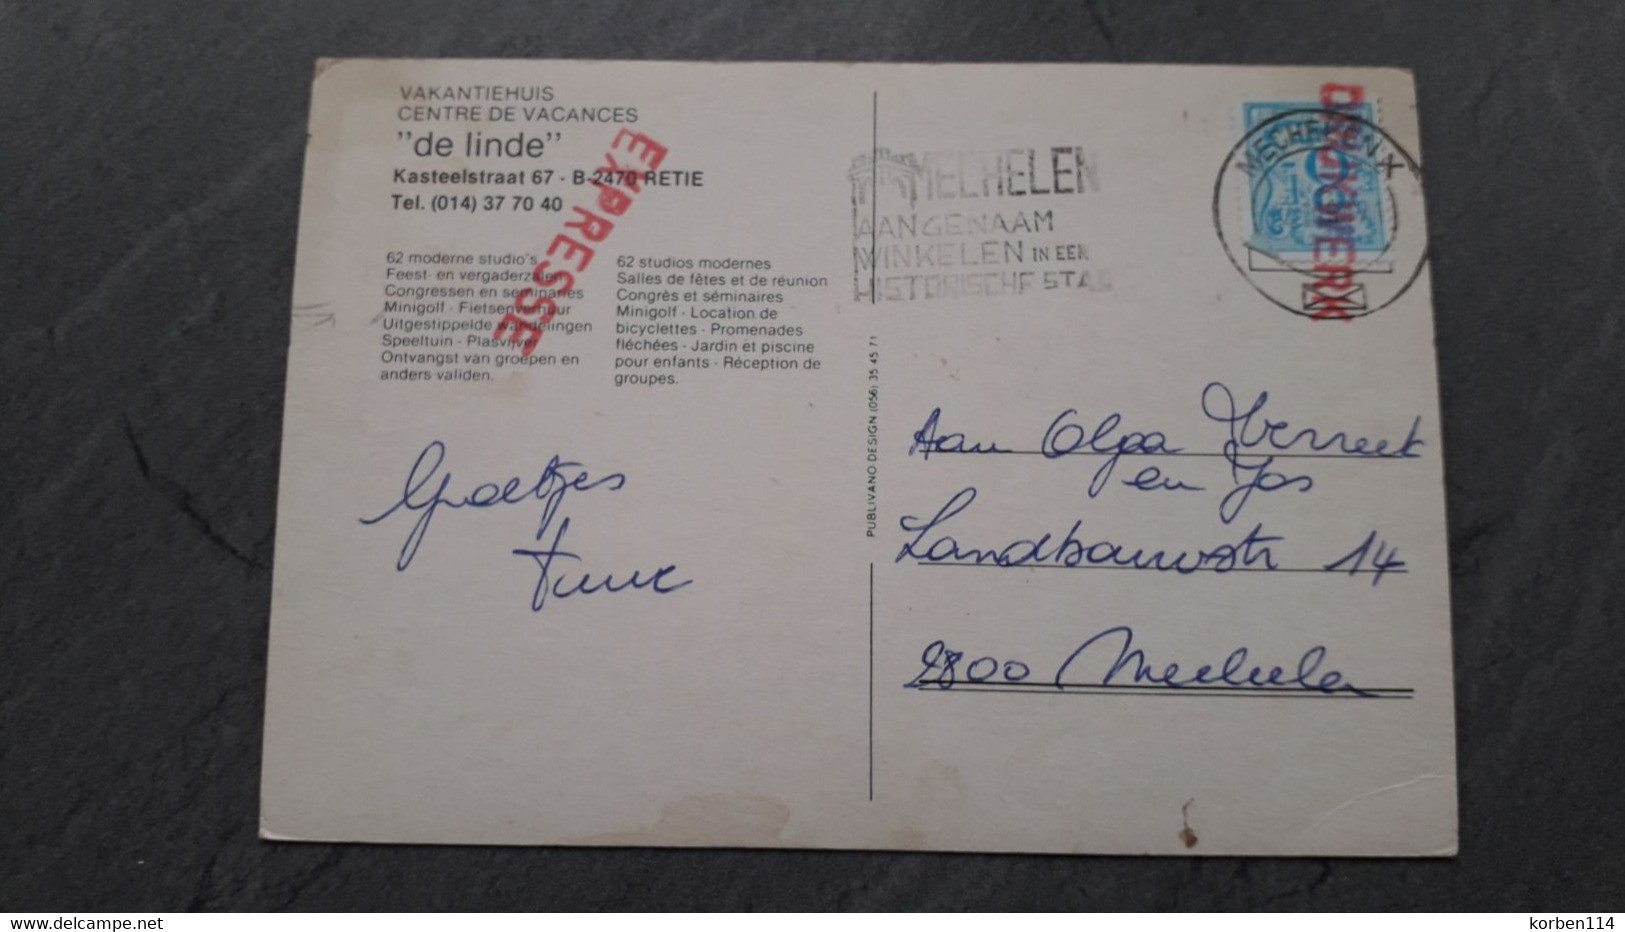 VAKANTIEHUIS
CENTRE DE VACANCES
"de linde"
Kasteelstraat 67 - B-2470 RETIE
Tel. (014) 37 70 40
EXPRESSE
62 moderne studio's
Feest- en vergaderzalen
Congressen en seminaries
Minigolf - Fietsenverhuur
Uitgestippelde wandelingen
Speeltuin - Plasvijver
Ontvangst van groepen en
anders validen.
62 studios modernes
Salles de fêtes et de réunion
Congrès et séminaires
Minigolf - Location de
bicyclettes - Promenades
fléchées - Jardin et piscine
pour enfants - Réception de
groupes.
Groetjes
PUBLIVANO DESIGN (056) 35 45 71
MECHELEN
AANGENAAM
WINKELEN IN EEN
HISTORISCHE STAD
MECHELEN X
DRUKWERK
Aan Olga
en Jos
Landbouwstr 14
2800 Mechelen
delcampe.net
korben114